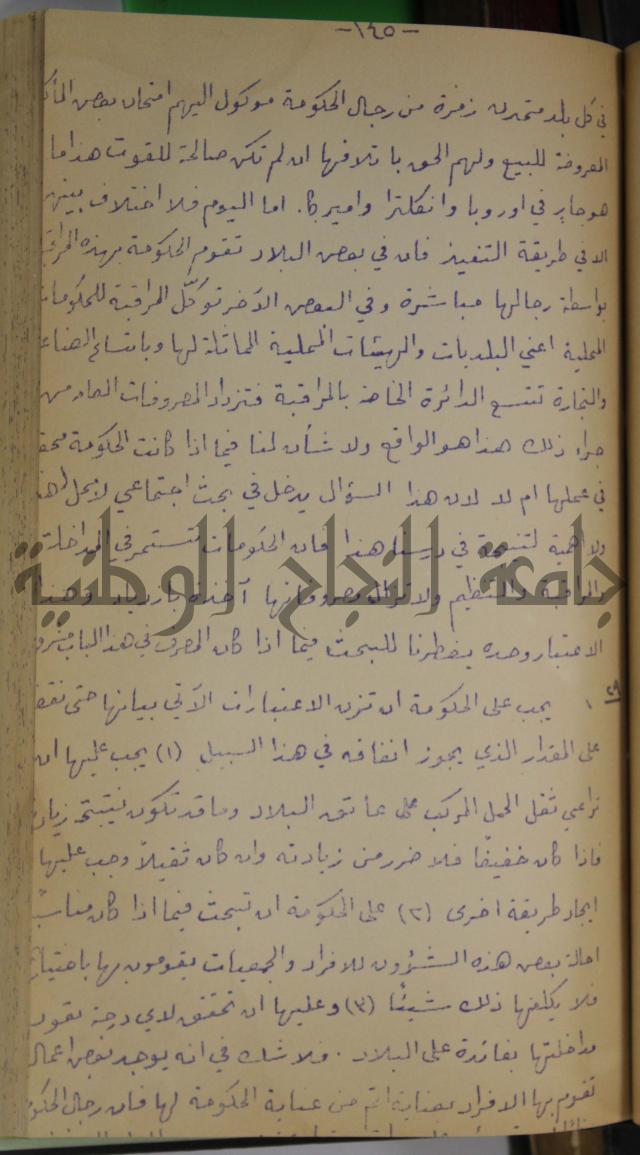 -١٤٥-
في كل بلد متمدن زمرة من رجال الحكومة موكول اليهم امتحان بعض
المعروضة للبيع ولهم الحق باتلافها ان لم تكن صالحة للقوت هذا ما
هو جار في اوروبا وانكلترا واميركا. اما اليوم فلا اختلاف بينهم
الا في طريقة التنفيذ فان في بعض البلاد تقوم الحكومة بهذه
بواسطة رجالها مباشرة وفي البعض الآخر توكّل المراقبة للحكومات
المحلية اعني البلديات والهيئات المحلية المماثلة لها وباتساع
والتجارة تتسع الدائرة الخاصة بالمراقبة فتزداد المصروفات
جراء ذلك هذا هو الواقع ولا شأن لنا فيما اذا كانت الحكومة
في عملها ام لا لان هذا السؤال يدخل في بحث اجتماعي لا محل
ولا اهمية في درسنا هذا فان الحكومات تستمر في المداخلة
والمراقبة والتنظيم ولا تزال مصروفاتها آخذة بازدياد وهذا
الاعتبار وحده يضطرنا للبحث فيما اذا كان المصرف في هذا الباب
٢٩ ١ يجب على الحكومة ان تزن الاعتبارات الآتي بيانها حتى
على المقدار الذي يجوز انفاقه في هذا السبيل (١) يجب عليها ان
تراعي ثقل الحمل المركب على عاتق البلاد وما قد تكون نتيجة
فاذا كان خفيفًا فلا ضرر من زيادته وان كان ثقيلًا وجب عليها
ايجاد طريقة اخرى (٢) على الحكومة ان تبحث فيما اذا كان
احالة بعض هذه الشؤون للافراد والجمعيات يقومون بها
فلا يكلفها ذلك شيئًا (٣) وعليها ان تحقق لاي درجة تعود
مداخلتها بفائدة على البلاد. فلا شك في انه يوجد بعض اعمال
تقوم بها الافراد بعناية اتم من عناية الحكومة لها فان رجال
جامعة النجاح الوطنية